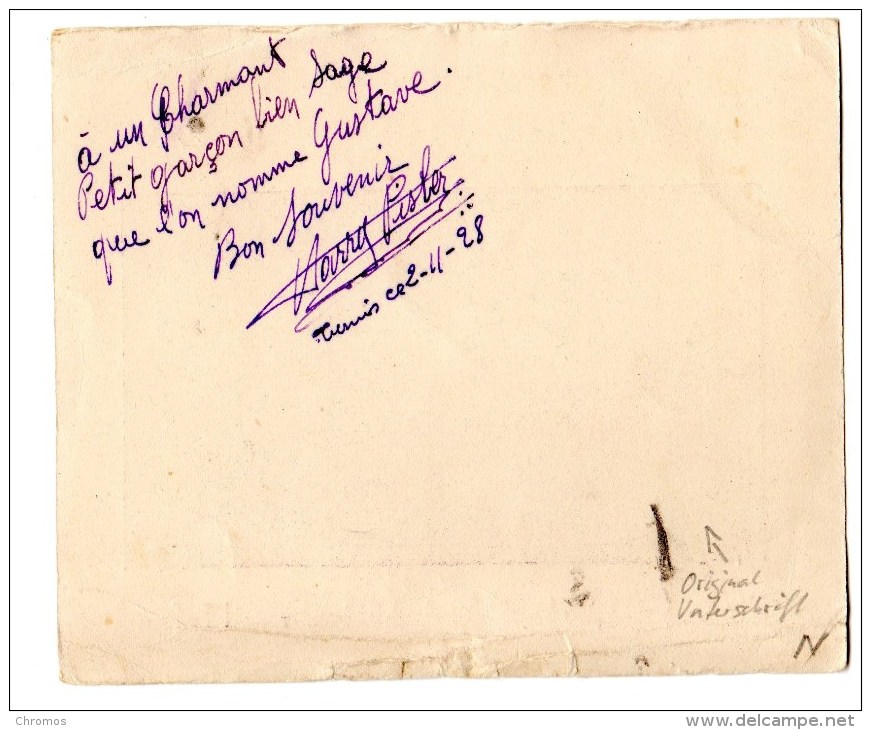 à un Charmant
Petit garçon bien sage
que l'on nomme Gustave.
Bon Souvenir
Harry
ce 2-11-28
Original
Unterschrift
N
Chromos
www.delcampe.net